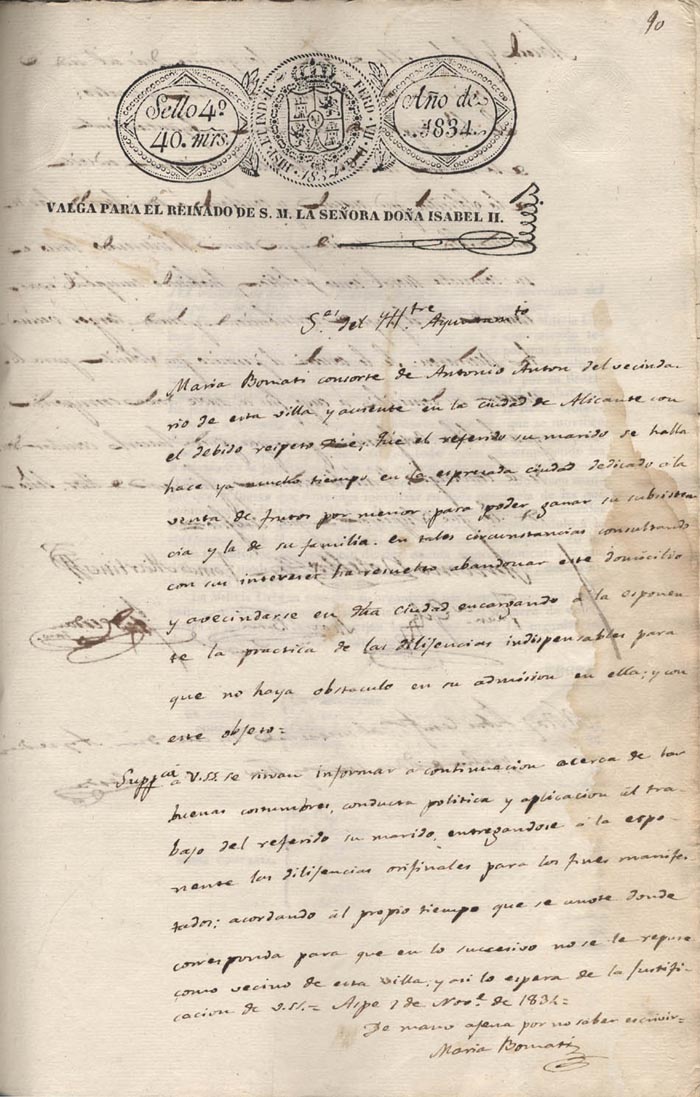 90
Sello 4º
40. mrs.
HISP. ET IND. R. FERD. VII. D. G. 1834.
Año de
1834.
VALGA PARA EL REINADO DE S. M. LA SEÑORA DOÑA ISABEL II.
S.es del Ill.tre Ayuntam.to
Maria Bomati consorte de Antonio Anton del vecinda-
rio de esta villa y ausente en la ciudad de Alicante con
el debido respeto Dice; que el referido su marido se halla
hace ya mucho tiempo en la espresada ciudad dedicado á la
venta de frutos por menor para poder ganar su subsisten
cia y la de su familia. en tales circunstancias consultando
con sus intereses ha resuelto abandonar este domicilio
y avecindarse en dha ciudad encargando á la esponen
te la practica de las dilijencias indispensables para
que no haya obstaculo en su admision en ella; y con
este objeto=
Supp.ca á V.SS. se sirvan informar a continuacion acerca de las
buenas costumbres, conducta politica y aplicacion al tra-
bajo del referido su marido, entregandose á la espo-
nente las dilijencias orijinales para los fines manifes-
tados; acordando al propio tiempo que se anote donde
corresponda para que en lo succesivo no se le repute
como vecino de esta villa; y asi lo espera de la Justifi-
cacion de V.SS.= Aspe 7 de Nov.e de 1834=
De mano ajena por no saber escrivir=
Maria Bomati